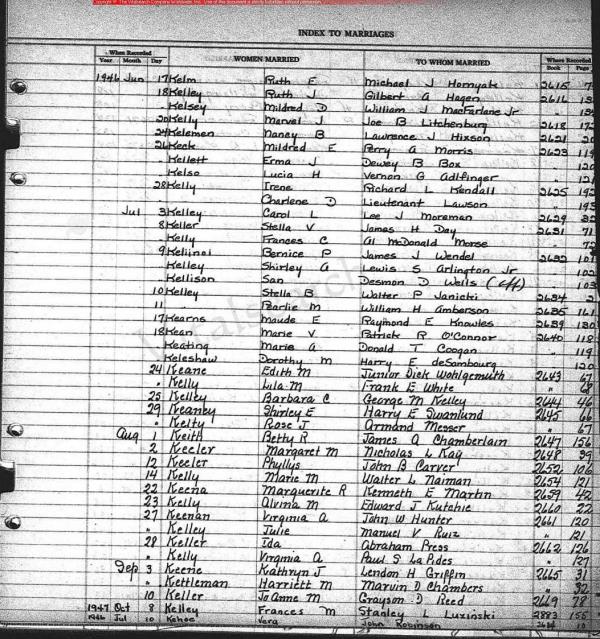 Copyright © The Vitalsearch Company Worldwide, Inc. Use of this document is strictly forbidden without permission.
INDEX TO MARRIAGES
When Recorded WOMEN MARRIED TO WHOM MARRIED Where Recorded
Year Month Day Book Page
1946 Jun 17 Kelm Ruth E Michael J Hornyak 2615 7
18 Kelley Ruth J Gilbert G Hagen 2616
" Kelsey Mildred D William J MacFarlane Jr "
20 Kelly Marvel J Joe B Litchenburg 2618
24 Kelemen Nancy B Lawrence J Hixson 2621
26 Keck Mildred E Perry A Morris 2623 119
" Kellett Erma J Dewey B Box " 120
" Kelso Lucia H Vernon G Adlfinger " 121
28 Kelly Irene Richard L Kendall 2625 192
" Charlene D Lieutenant Lawson " 193
Jul 3 Kelley Carol L Lee J Moreman 2629 32
8 Keller Stella V James H Day 2631 71
" Kelly Frances C Al McDonald Morse " 72
9 Keliinoi Bernice P James J Wendel 2632 101
" Kelley Shirley A Lewis S Arlington Jr " 102
" Kellison San Desmon D Wells (Aff) " 103
10 Kelley Stella B Walter P Janicki 2634 2
11 " Pearlie M William H Amberson 2635 161
17 Kearns Maude E Raymond E Knowles 2639 130
18 Kean Marie V Patrick R O'Connor 2640 118
" Keating Marie A Donald T Coogan " 119
" Keleshaw Dorothy M Harry E deSambourg " 120
24 Keane Edith M Junior Dick Wohlgemuth 2643 67
" Kelly Lila M Frank E White " 68
25 Kelley Barbara C George M Kelley 2644 46
29 Keaney Shirley E Harry E Swanlund 2645 66
" Kelty Rose J Armand Messer " 67
Aug 1 Keith Betty R James A Chamberlain 2647 156
2 Keeler Margaret M Nicholas L Kay 2648 39
12 Keeler Phyllys John B Carver 2652 106
14 Kelly Marie M Walter L Naiman 2654 121
22 Keena Marguerite R Kenneth E Martin 2659 42
23 Kelly Alvina M Edward J Kutchie 2660 22
27 Keenan Virginia A John W Hunter 2661 120
" Kelley Julie Manuel V Ruiz " 121
28 Keller Ida Abraham Press 2662 126
" Kelly Virginia A Paul S La Pides " 127
Sep 3 Keene Kathryn J Lendon H Griffin 2665 31
" Kettleman Harriett M Marvin D Chambers " 32
10 Keller Jo Anne M Grayson D Reed 2669 78
1947 Oct 8 Kelley Frances M Stanley L Luzinski 2883 155
1946 Jul 10 Kehoe Vera John Robinson 10